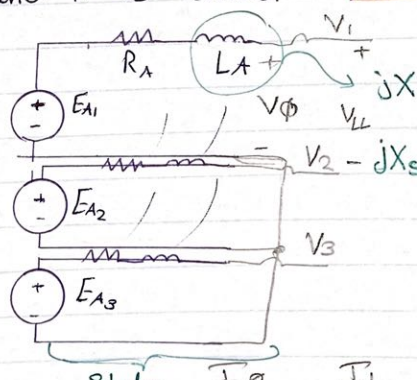 V1
RA LA + +
jX
+ EA1 Vφ VLL
-
- V2 - jXs
+ EA2
-
V3
+ EA3
-